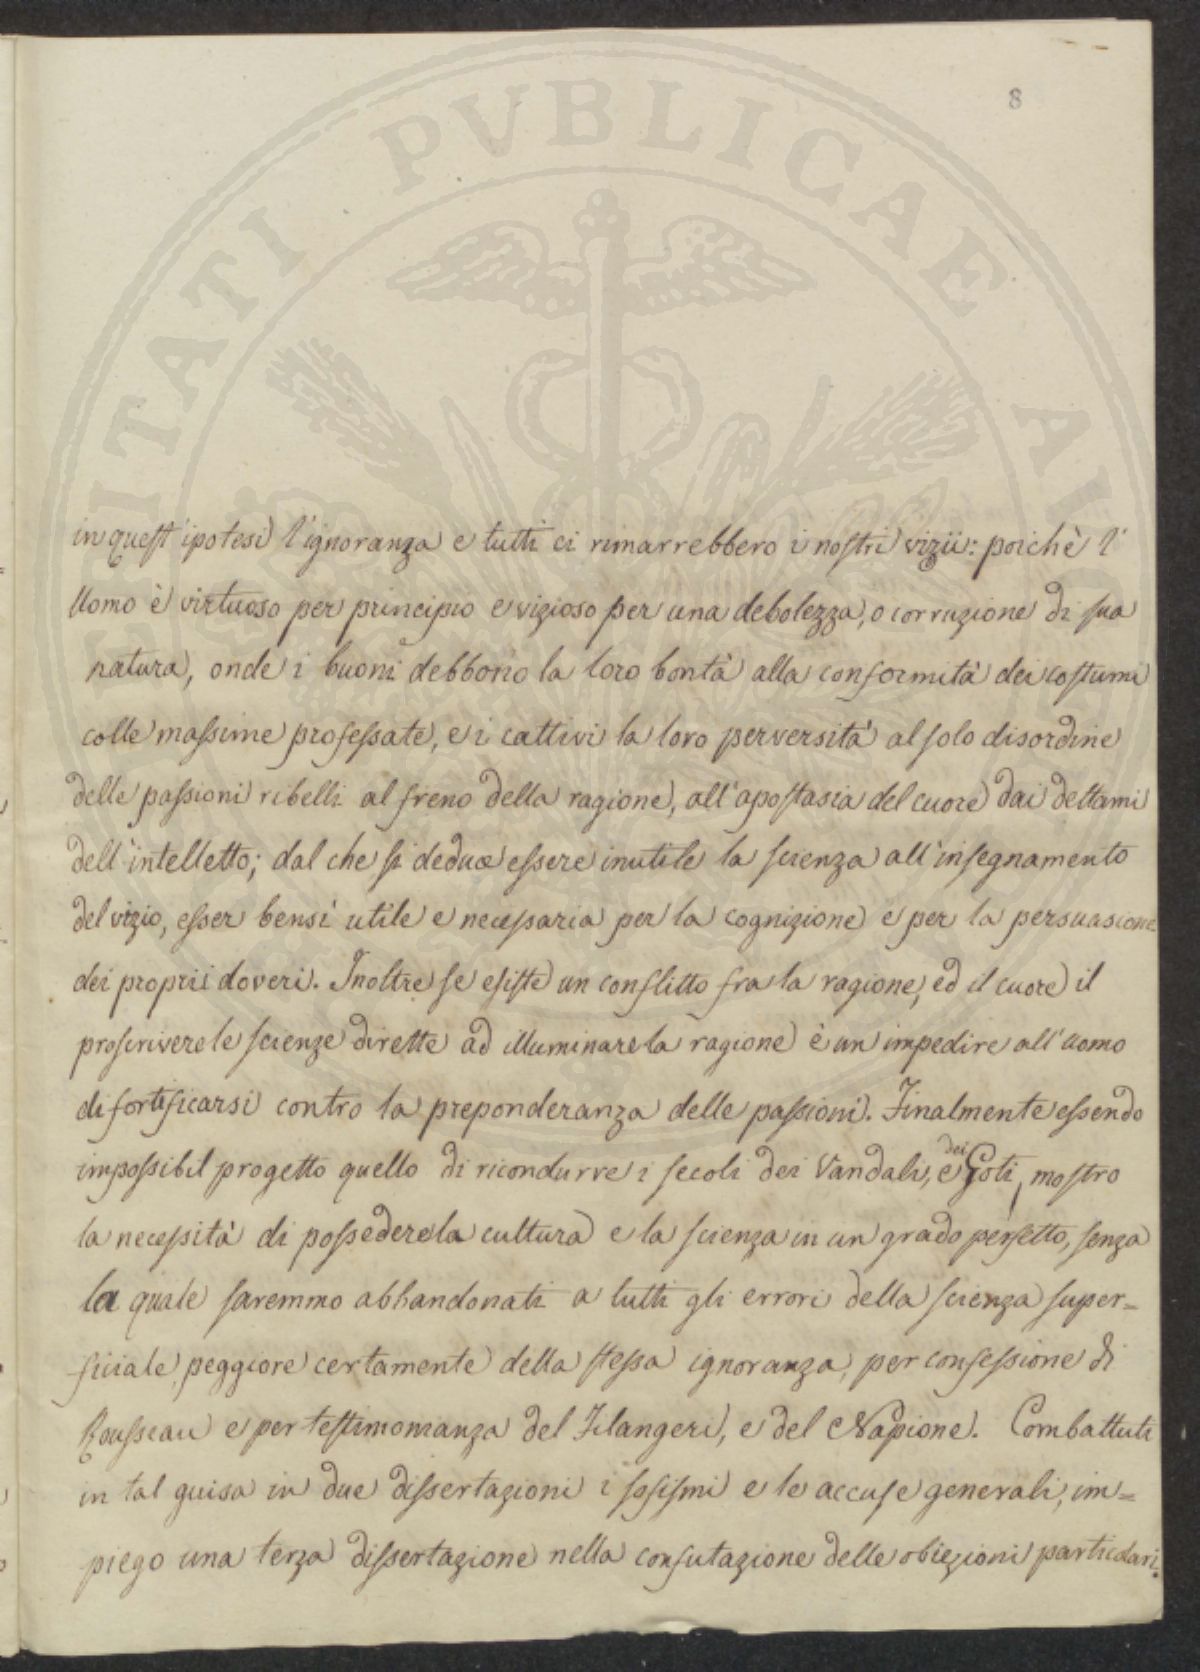 VERITATI PVBLICAE
8
in quest'ipotesi l'ignoranza e tutti ci rimarrebbero i nostri vizii: poichè l'
Uomo è virtuoso per principio e vizioso per una debolezza, o corruzione di sua
natura, onde i buoni debbono la loro bontà alla conformità dei costumi
colle massime professate, e i cattivi la loro perversità al solo disordine
delle passioni ribelli al freno della ragione, all'apostasia del cuore dai dettami
dell'intelletto; dal che si deduce essere inutile la scienza all'insegnamento
del vizio, esser bensì utile e necessaria per la cognizione e per la persuasione
dei proprii doveri. Inoltre se esiste un conflitto fra la ragione, ed il cuore il
proscrivere le scienze dirette ad illuminare la ragione è un impedire all'uomo
di fortificarsi contro la preponderanza delle passioni. Finalmente essendo
impossibil progetto quello di ricondurre i secoli dei Vandali, e dei Goti, mostro
la necessità di possedere la cultura e la scienza in un grado perfetto, senza
la quale saremmo abbandonati a tutti gli errori della scienza super=
ficiale, peggiore certamente della stessa ignoranza, per confessione di
Rousseau e per testimonianza del Filangeri, e del Napione. Combattuti
in tal guisa in due dissertazioni i sofismi e le accuse generali, im=
piego una terza dissertazione nella confutazione delle obiezioni particolari.